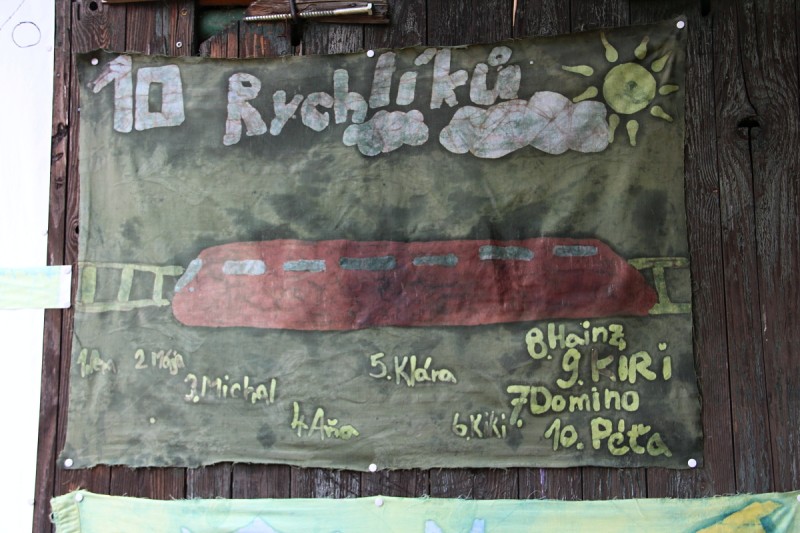 10 Rychlíků
1.
2 Mája
3. Michal
4. Aňa
5. Klára
6. Kiki
7 Domino
8. Hainz
9. KIRI
10. Péťa